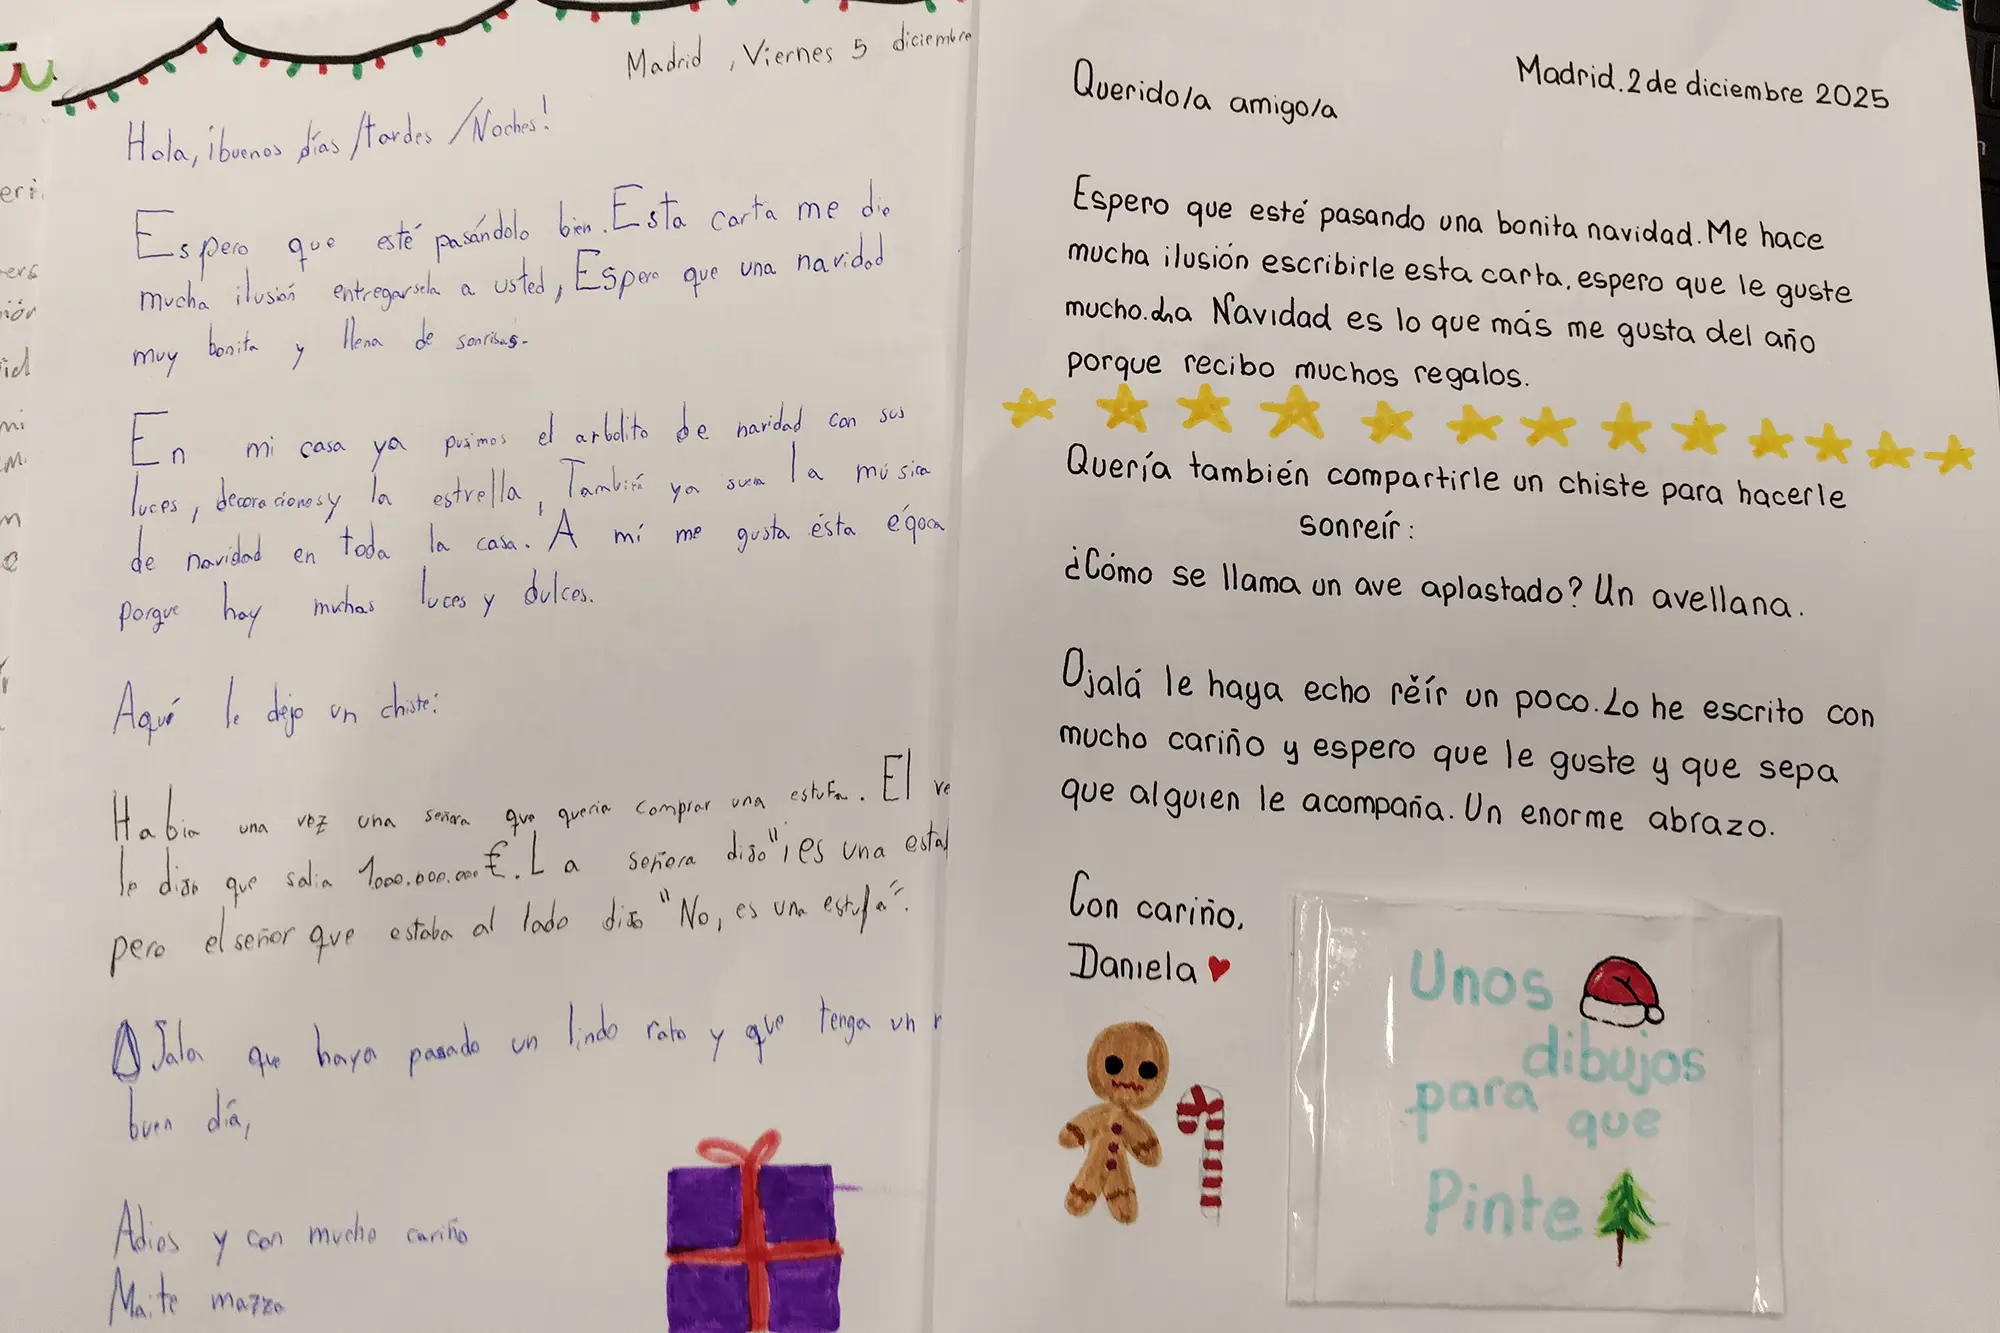 Madrid, Viernes 5 diciembre
Hola, ¡buenos días /tardes /Noches!
Espero que esté pasándolo bien. Esta carta me dio
mucha ilusión entregarsela a usted, Espero que una navidad
muy bonita y llena de sonrisas.
En mi casa ya pusimos el arbolito de navidad con sus
luces, decoraciones y la estrella, También ya suena la música
de navidad en toda la casa. A mí me gusta ésta época
porque hay muchas luces y dulces.
Aquí le dejo un chiste:
Habia una vez una señora que queria comprar una estufa. El ve
le dijo que salia 1.000.000.000 €. La señora dijo "¡es una estaf
pero el señor que estaba al lado dijo "No, es una estufa".
Ojala que haya pasado un lindo rato y que tenga un
buen día,
Adios y con mucho cariño
Maite mazza
Madrid. 2 de diciembre 2025
Querido/a amigo/a
Espero que esté pasando una bonita navidad. Me hace
mucha ilusión escribirle esta carta, espero que le guste
mucho. La Navidad es lo que más me gusta del año
porque recibo muchos regalos.
Quería también compartirle un chiste para hacerle
sonreír:
¿Cómo se llama un ave aplastado? Un avellana.
Ojalá le haya echo reír un poco. Lo he escrito con
mucho cariño y espero que le guste y que sepa
que alguien le acompaña. Un enorme abrazo.
Con cariño,
Daniela
Unos
dibujos
para que
Pinte